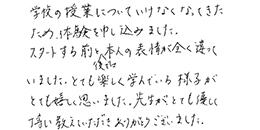 学校の授業についていけなくなってきた
ため、体験を申し込みました。
スタートする前と後では本人の表情が全く違って
いました。とても楽しく学んでいる様子が
とても嬉しく思いました。先生がとても優しく
教えていただきありがとうございました。